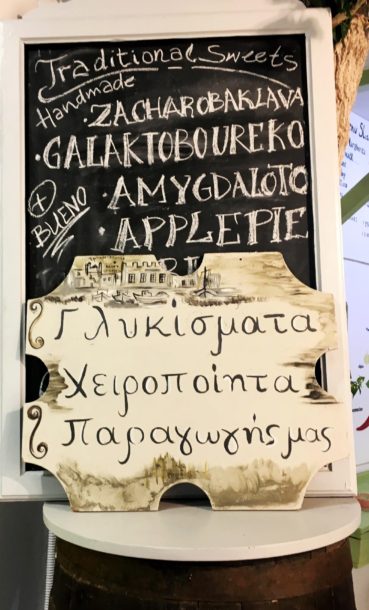 Traditional Sweets
Handmade
· ZACHAROBAKLAVA
· GALAKTOBOUREKO
· AMYGDALOTO
+ BUENO
· APPLEPIE
Γλυκίσματα
Χειροποίητα
Παραγωγής μας